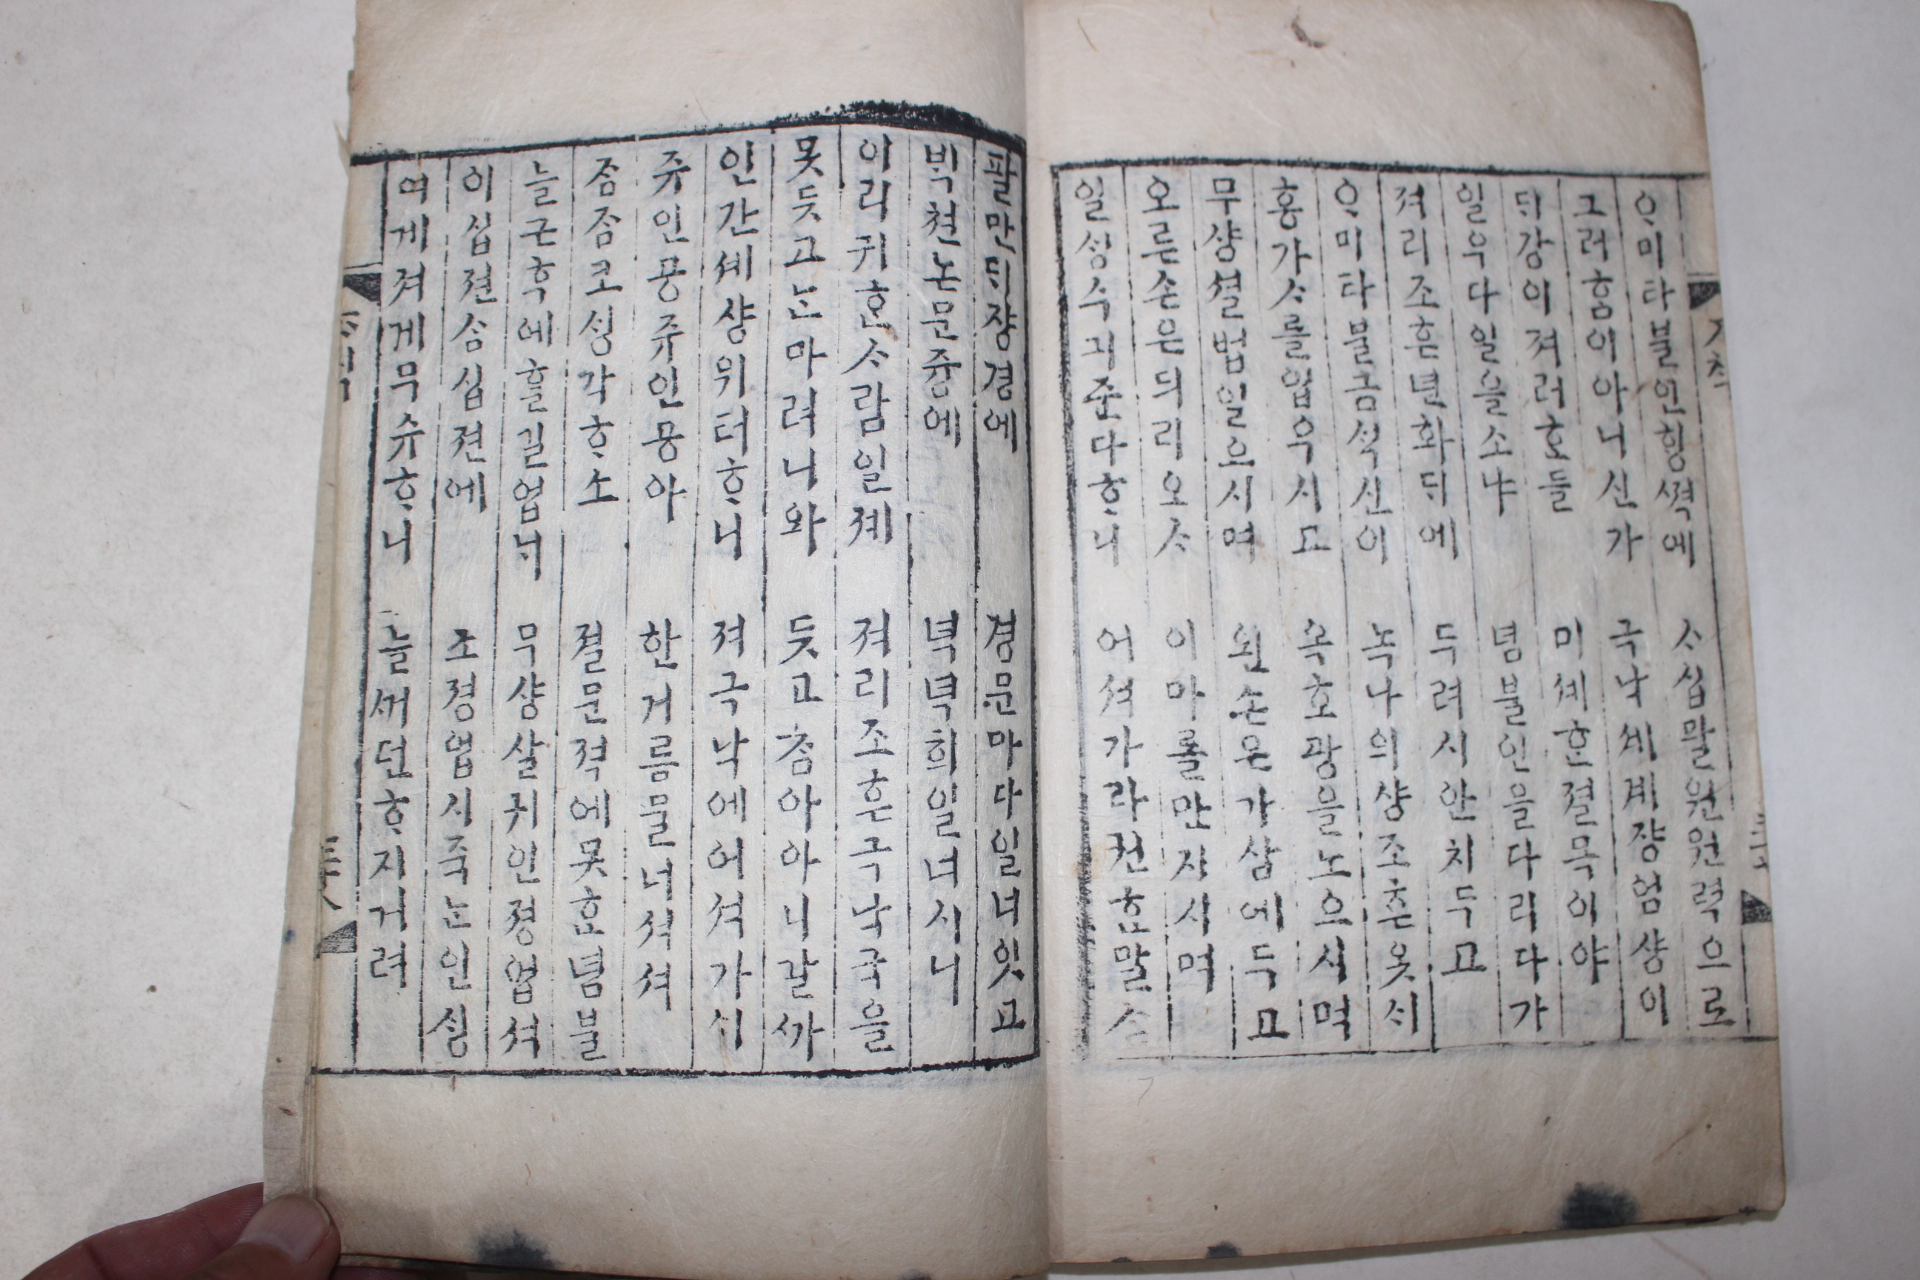 ᄋᆞ미타불인ᄒᆡᆼ셕에 ᄉᆞ십팔원원력으로
그러홈이아니신가 극낙셰계쟝엄샹이
ᄃᆡ강이져러ᄒᆞ들 미셰ᄒᆞᆫ결목이야
일우다일을소냐 념불인을다리다가
져리조흔년화ᄃᆡ에 두려시안치두고
ᄋᆞ미타불금ᄉᆡᆨ신이 녹나의샹조흔옷시
홍가ᄉᆞ를업우시고 옥호광을노으시며
무샹셜범일으시며 왼손은가삼에두고
오른손은듸리오ᄉᆞ 이마롤만지시며
일셩수긔준다ᄒᆞ니 어셔가라젼ᄒᆞ말ᄉᆞ
팔만ᄃᆡ쟝경에 경문마다일너잇고
ᄇᆡᆨ쳔논문즁에 녁녁희일너시니
이리귀ᄒᆞᆫᄉᆞ람일졔 져리조흔극낙국을
못듯고ᄂᆞᆫ마려니와 듯고ᄎᆞᆷ아아니갈ᄭᅡ
인간셰샹위터ᄒᆞ니 져극낙에어셔가시
쥬인몽쥬인몽아 한거름믈너셔셔
죰죰코ᄉᆡᆼ각ᄒᆞ소 졀문젹에못ᄒᆞᆫ념불
늘근후에ᄒᆞᆯ길업ᄂᆡ 무샹살귀인졍업셔
이십젼삼십젼에 조졍업시죽ᄂᆞᆫ인ᄉᆡᆼ
여게져게무슈ᄒᆞ니 늘ᄭᅦ던ᄒᆞ지거려